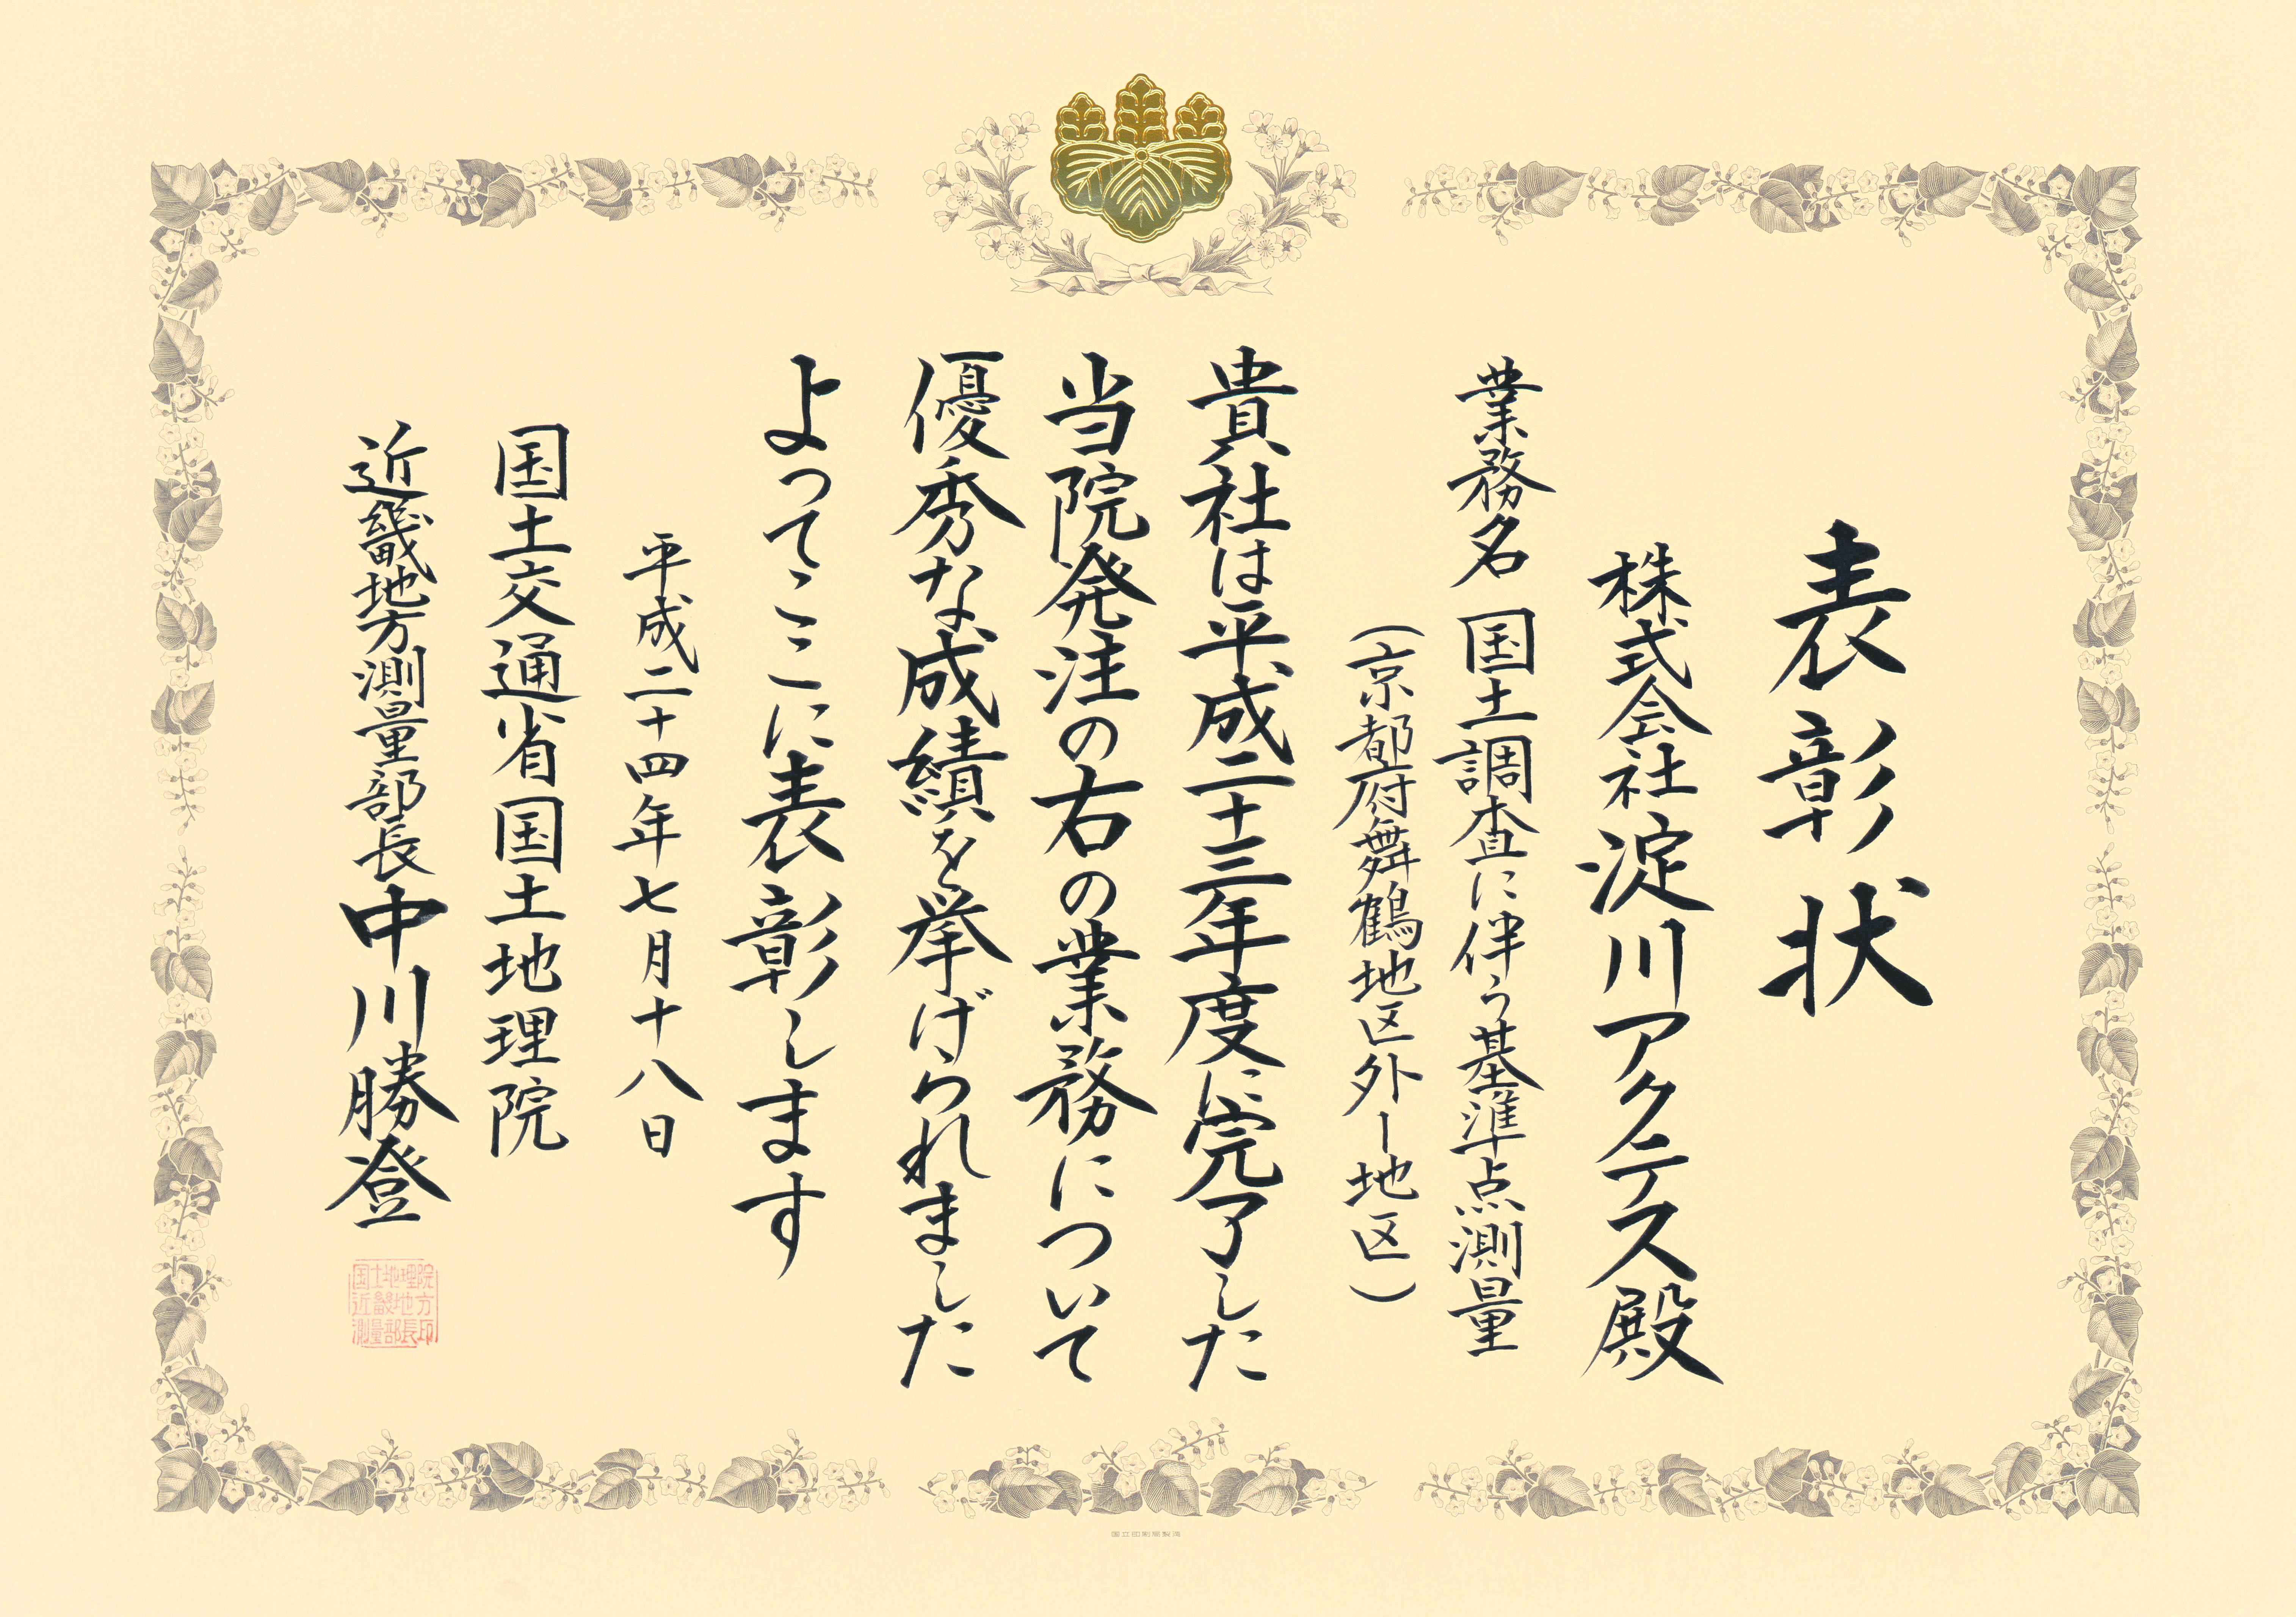 表彰状
株式会社淀川アクテス殿
業務名 国土調査に伴う基準点測量
（京都府舞鶴地区外一地区）
貴社は平成二十三年度に完了した
当院発注の右の業務について
優秀な成績を挙げられました
よってここに表彰します
平成二十四年七月十八日
国土交通省国土地理院
近畿地方測量部長中川勝登
国土地理院
近畿地方
測量部長印
国立印刷局製造